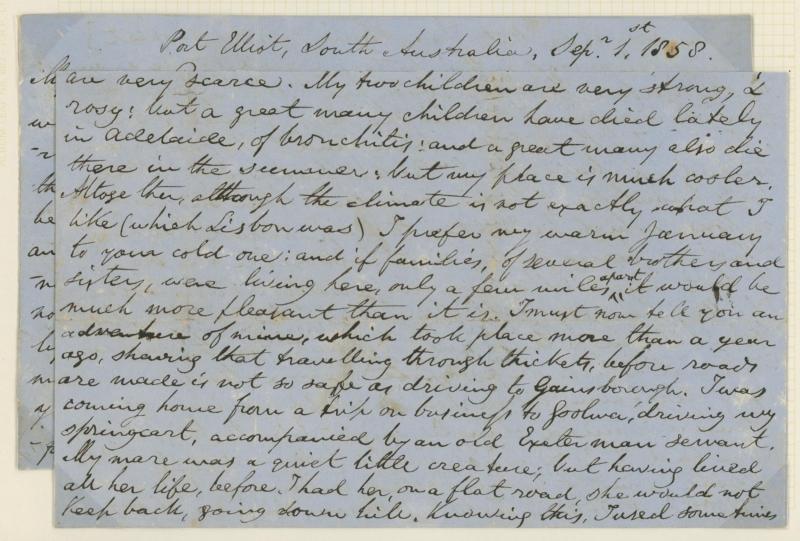 Port Elliot, South Australia, Sepr. 1st, 1858.
are very scarce. My two children are very strong, &
rosy: but a great many children have died lately
in Adelaide, of bronchitis: and a great many also die
there in the summer: but my place is much cooler.
Altogether, although the climate is not exactly what I
like (which Lisbon was) I prefer my warm January
to your cold one: and if families, of several brothers and
sisters, were living here, only a few miles apart, it would be
much more pleasant than it is. I must now tell you an
adventure of mine, which took place more than a year
ago, shewing that travelling through thickets, before roads
are made is not so safe as driving to Gainsborough. I was
coming home from a trip on business to Goolwa, driving my
springcart, accompanied by an old Exeter man servant.
My mare was a quiet little creature; but having lived
all her life, before I had her, on a flat road, she would not
keep back, going down hill. Knowing this, I used sometimes